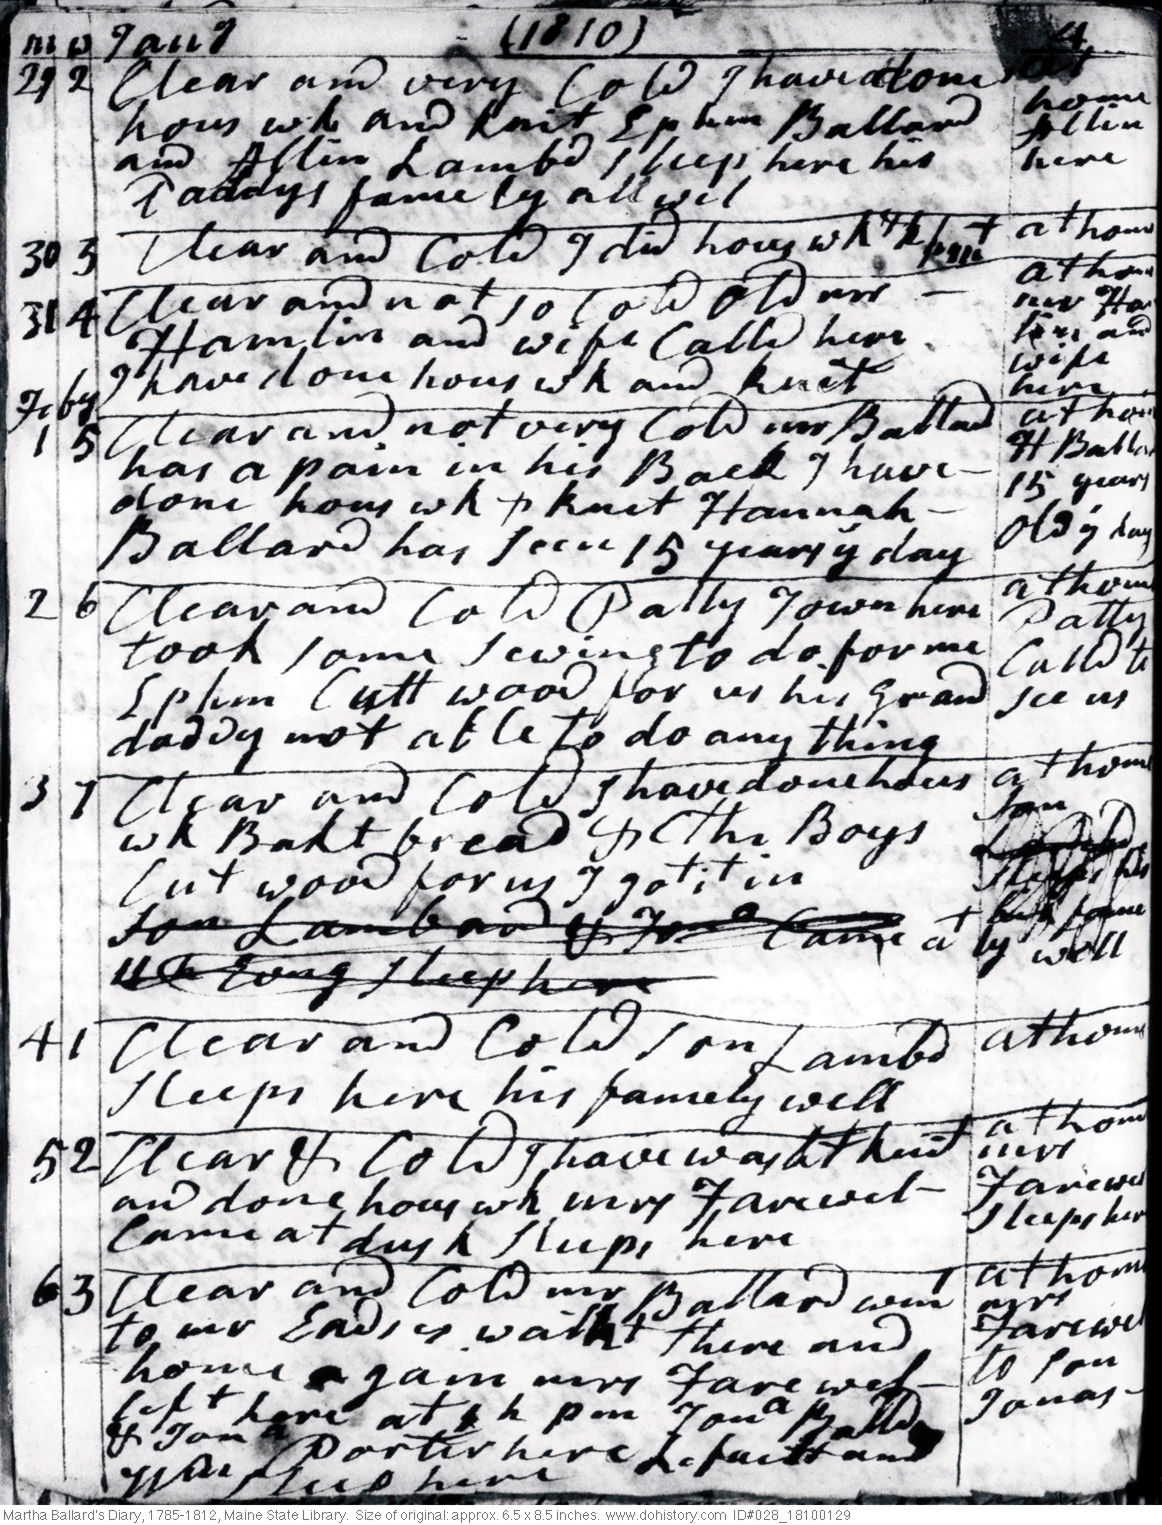 m w Jany (1810) 4
29 2 Clear and very Cold I have done at
hous wk and knit Ephm Ballard home
and Allin Lambd sleep here his Allin
Daddys famely all wel here
30 3 Clear and Cold I did hous wk & knit at home
31 4 Clear and not so Cold Old mr — at home
Hamlin and wife Calld here mr Ham
I have done hous wk and knit lin and
wife
here
Feby
1 5 Clear and not very Cold mr Ballad at home
has a pain in his Back I have — H Balla
done hous wk & knit Hannah — 15 years
Ballard has seen 15 years ÿ day old ÿ day
2 6 Clear and Cold Patty Town here at home
took some sewing to do for me Patty
Ephm Cutt wood for us his Grand Calld to
daddy not able to do any thing see us
3 7 Clear and Cold I have done hous at home
wk Bakt bread &C the Boys son
Cut wood for us I got it in sleeps
son Lambard & Jona Came at fame
sleep here ly well
4 1 Clear and Cold son Lambd at home
sleeps here his famely well
5 2 Clear & Cold I have washt knit at home
and done hous wk mrs Farewel — mrs
Came at dusk sleeps here Farewel
sleeps her
6 3 Clear and Cold mr Ballard went at home
to mr Eadses walkt there and mrs
home again mrs Farewel — Farewel
left here at h pm Jona Balld to son
& Jona Porter here Lafaitt and Jonas —
Wm sleep here
Martha Ballard's Diary, 1785-1812, Maine State Library. Size of original: approx. 6.5 x 8.5 inches. www.dohistory.com ID#028_18100129